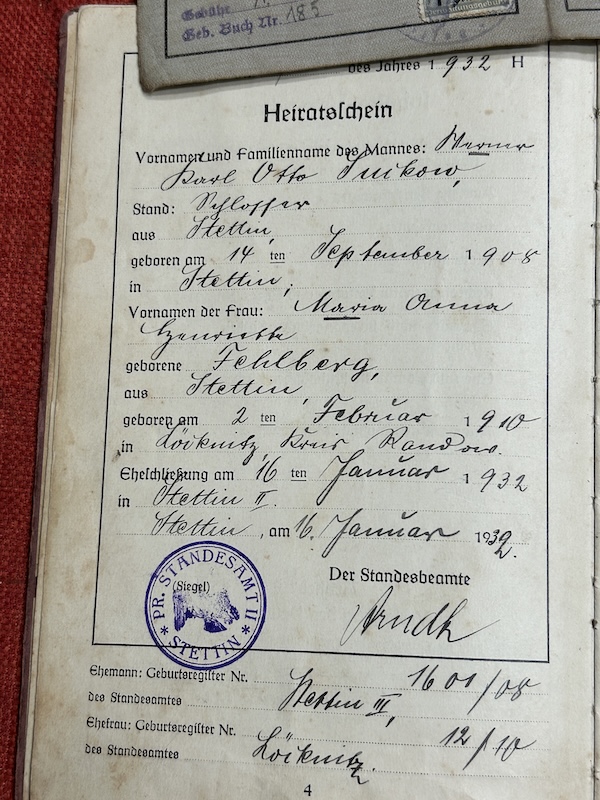 Gebühr
Geb. Buch Nr. 185
des Jahres 1932 H
Heiratsschein
Vornamen und Familienname des Mannes: Werner
Karl Otto Suckow,
Stand: Schlosser
aus Stettin,
geboren am 14 ten September 1908
in Stettin,
Vornamen der Frau: Maria Anna
Henriette
geborene Fehlberg,
aus Stettin,
geboren am 2 ten Februar 1910
in Löcknitz, Kreis Randow.
Eheschließung am 16 ten Januar 1932
in Stettin II.
Stettin, am 16. Januar 1932.
Der Standesbeamte
(Siegel)
PR. STANDESAMT II
* STETTIN *
Arndt
Ehemann: Geburtsregister Nr. 1601/08
des Standesamtes Stettin III,
Ehefrau: Geburtsregister Nr. 12/10
des Standesamtes Löcknitz.
4